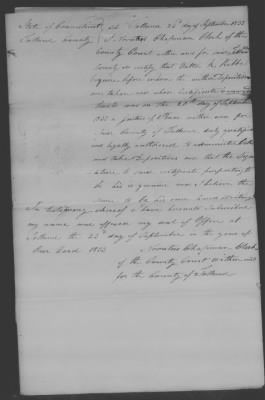 State of Connecticut, ss. Tolland 25th day of September 1833
Tolland County, I Novatus Chapman Clerk of the
County Court within and for said
County do certify that
Esquire before whom the within Depositions
are taken and whose Certificate
was on the day of September
1833 a Justice of Peace within and for
said County of Tolland duly qualified
and legally authorized to administer Oaths
and take Depositions and that the Signature
to said certificate purporting to
be his is genuine and I believe the
same to be his own hand writing
In testimony whereof I have hereunto Subscribed
my name and affixed my seal of Office at
Tolland the 25th day of September in the year of
our Lord 1833
Novatus Chapman Clerk
of the County Court within and
for the County of Tolland